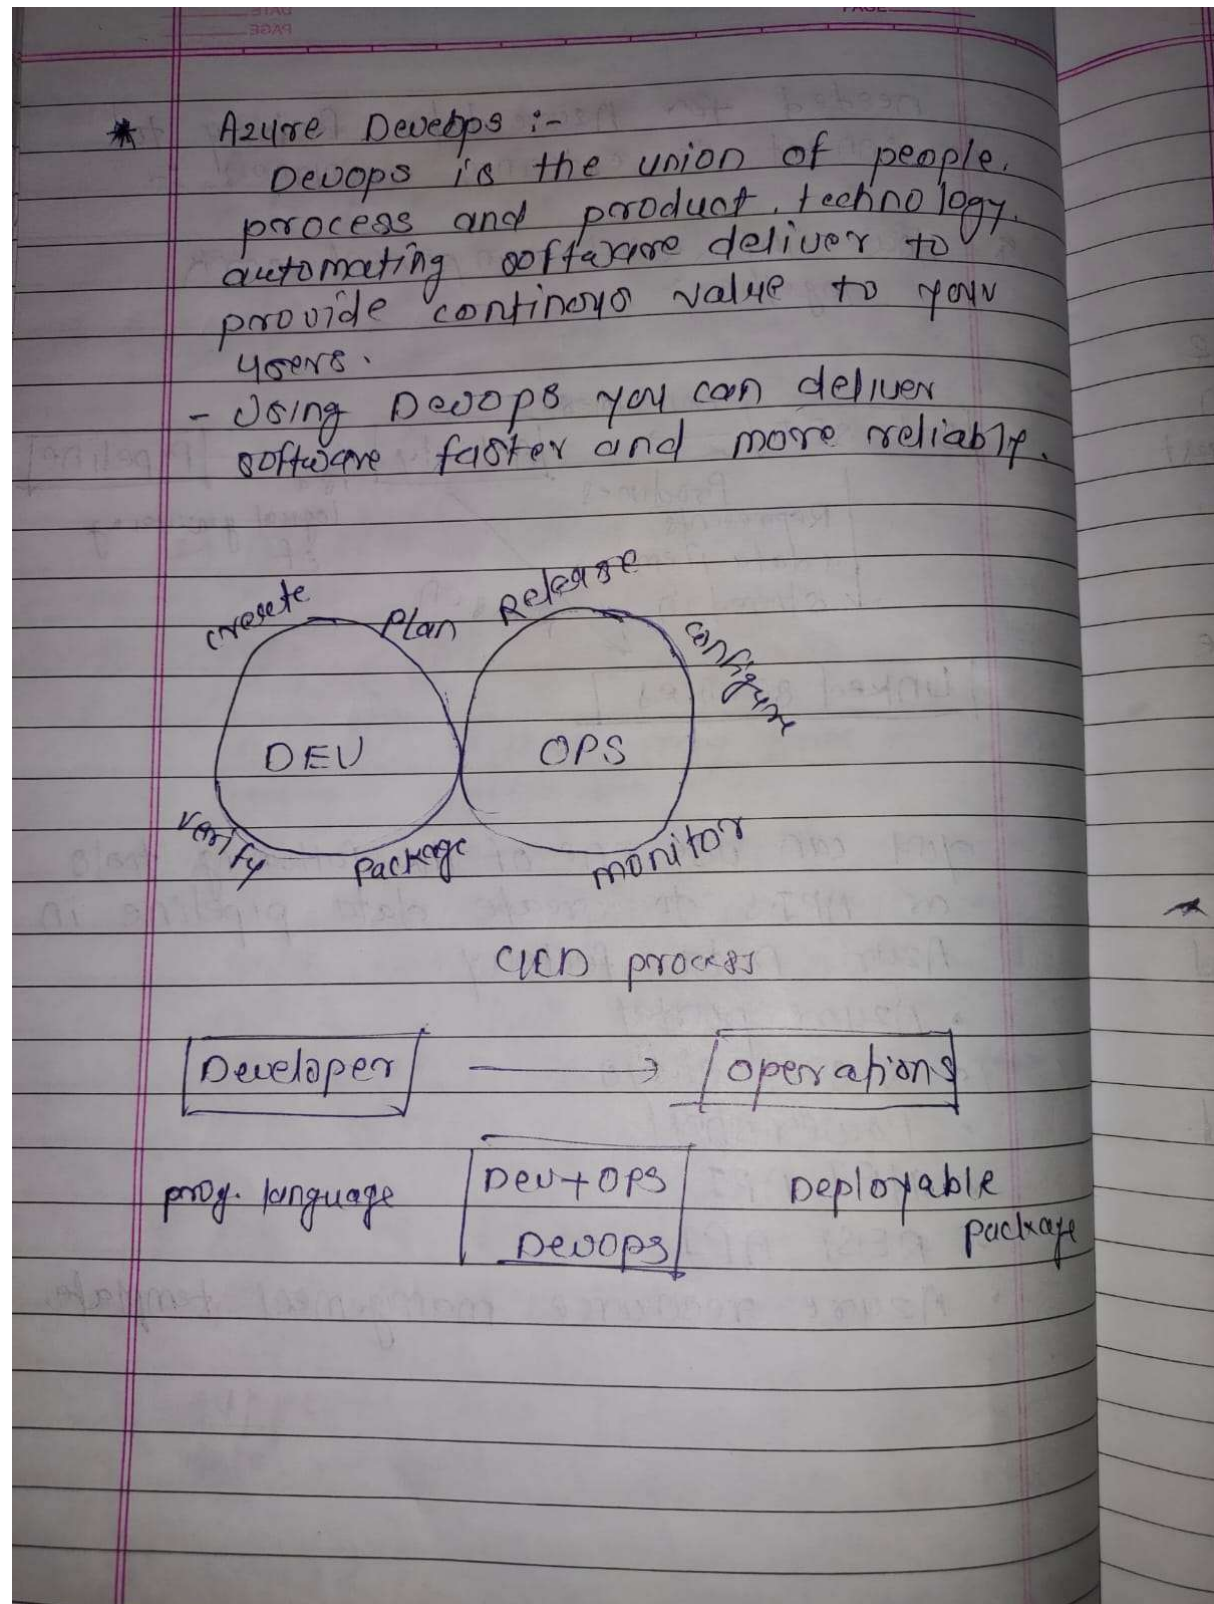 * Azure Devebps :-
Devops is the union of people.
process and product. technology.
automating software deliver to
provide continous value to your
users.
- Using Devops you can deliver
software faster and more reliably.
create
Plan
Release
configure
DEV
OPS
verify
Package
monitor
CICD process
Developer → Operations
prog. language
Dev+OPS
Devops
Deployable
package